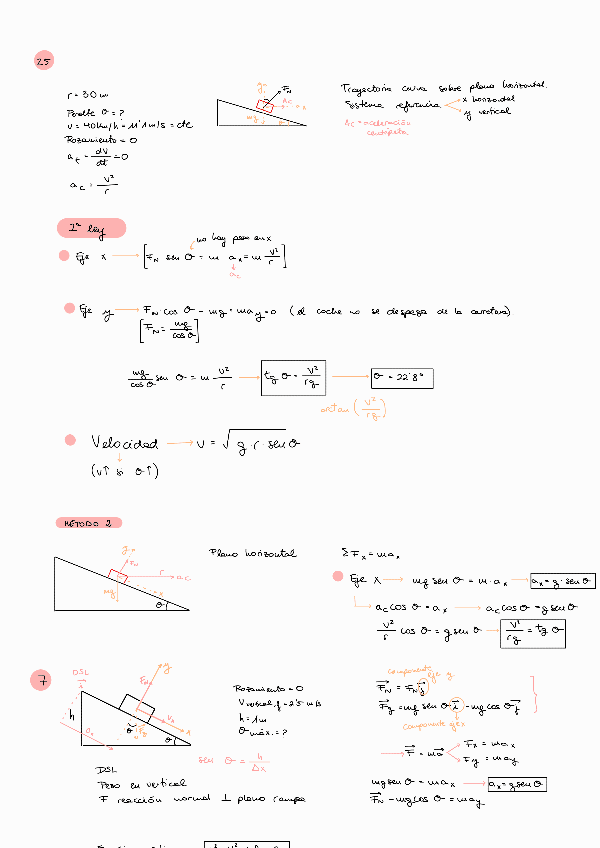 25
r = 30 m
Peralte θ = ?
v = 40 km/h = 11'1 m/s = cte
Rozamiento = 0
a_t = dV/dt = 0
a_c = v²/r
y
F_N
a_c
x
mg
θ
Trayectoria curva sobre plano horizontal.
Sistema referencia → x horizontal
→ y vertical
A_c = aceleración
centrípeta
1ª ley
no hay peso en x
Eje x → [F_N sen θ = m a_x = m v²/r]
a_c
Eje y → F_N cos θ - mg = ma_y = 0 (el coche no se despega de la carretera)
[F_N = mg/cos θ]
mg/cos θ sen θ = m · v²/r → tg θ = v²/rg → θ = 22'8°
artan (v²/rg)
Velocidad → v = √g · r · sen θ
(v↑ si θ↑)
MÉTODO 2
y
F_N
r
a_c
mg
x
θ
Plano horizontal
ΣF_x = ma_x
Eje x → mg sen θ = m · a_x → a_x = g · sen θ
a_c cos θ = a_x → a_c cos θ = g sen θ
v²/r cos θ = g sen θ → v²/rg = tg θ
7
DSL
h
y
x
θ
sen θ = h/Δx
Rozamiento = 0
h = 1 m
θ máx. = ?
DSL
Peso en vertical
F reacción normal ⊥ plano rampa
componente eje y
F_N = F_N j
F_g = mg sen θ i - mg cos θ j
componente eje x
F = ma → F_x = ma_x
F_y = ma_y
mg sen θ = ma_x → a_x = g sen θ
F_N - mg cos θ = ma_y